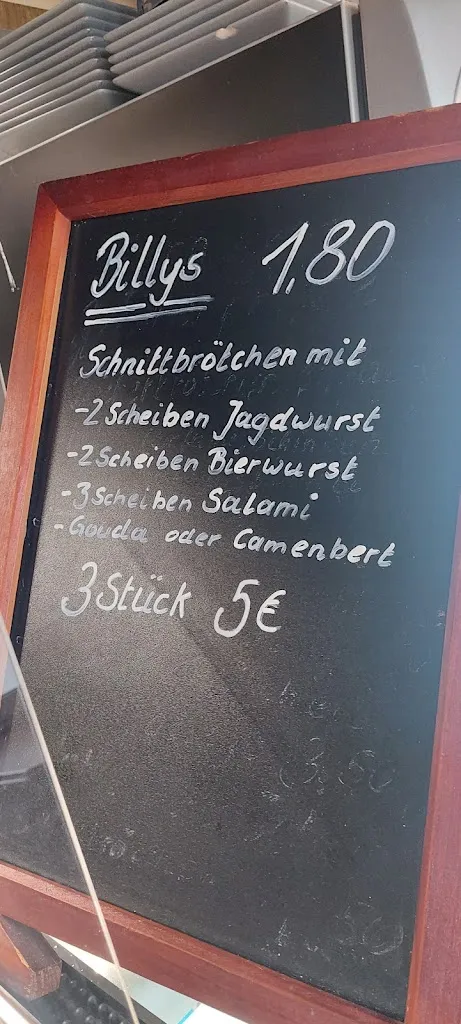 Billys 1,80
Schnittbrötchen mit
-2 Scheiben Jagdwurst
-2 Scheiben Bierwurst
-3 Scheiben Salami
-Gouda oder Camenbert
3 Stück 5€